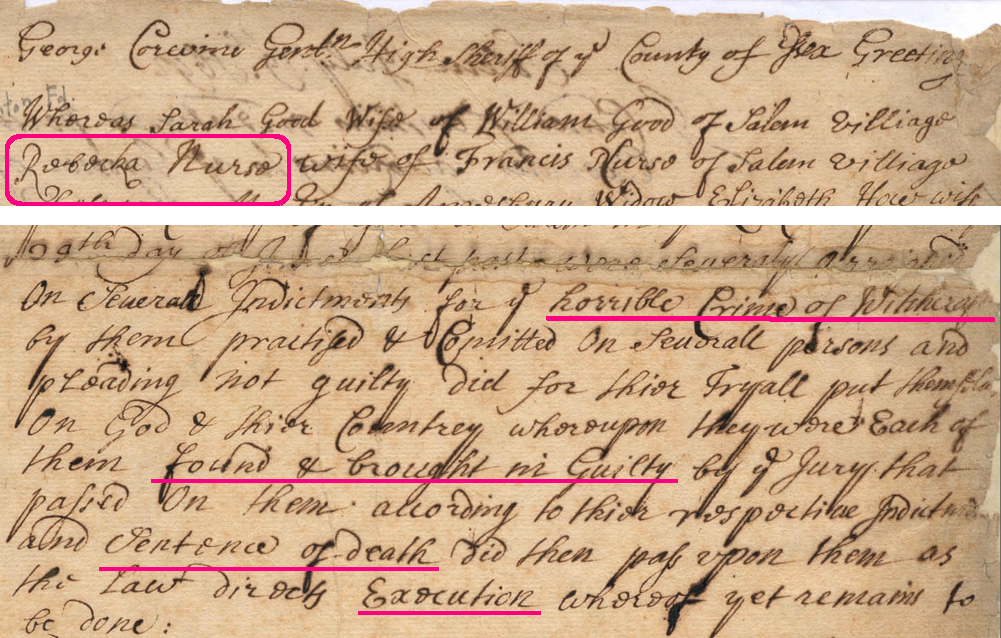 George Corwine Gentn High Sheriff of ye County of Essex Greeting
Whereas Sarah Good Wife of William Good of Salem Villiage
Rebecka Nurse wife of Francis Nurse of Salem Villiage
of Amesbury Widow Elizabeth How wife
29th day of last past were severaly
On Severall Indictments for ye horrible Crime of Witchcraft
by them practised & Comitted On Severall persons and
pleading not guilty did for thier Tryall put themselves
On God & thier Countrey whereupon they were Each of
them found & brought in Guilty by ye Jury that
passed On them according to thier respective Indictm
and Sentence of death did then pass upon them as
the Law directs Execution whereof yet remains to
be done: